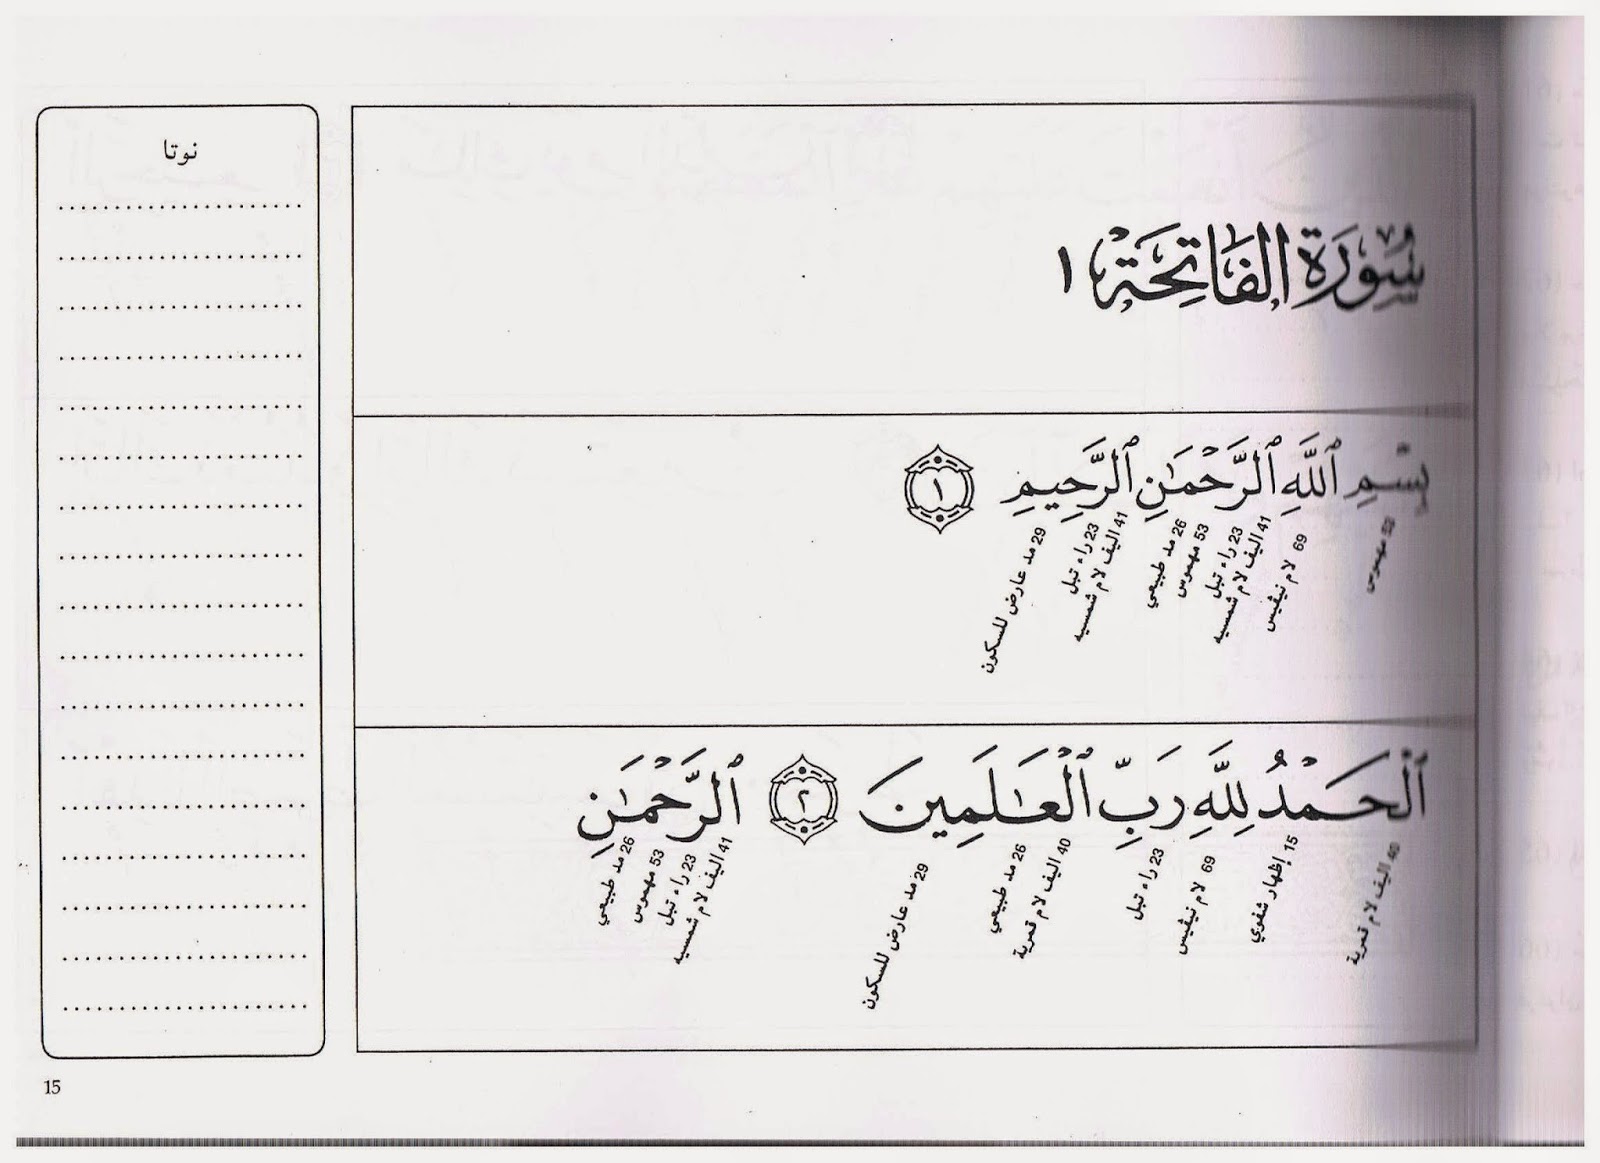 سُورَةُ الفَاتِحَةِ ١
بِسْمِ ٱللَّهِ ٱلرَّحْمَٰنِ ٱلرَّحِيمِ ١
53 مهموس
69 لام نيڤيس
41 اليف لام شمسيه
23 راء تبل
53 مهموس
26 مد طبيعي
41 اليف لام شمسيه
23 راء تبل
29 مد عارض للسكون
ٱلْحَمْدُ لِلَّهِ رَبِّ ٱلْعَٰلَمِينَ ٢ ٱلرَّحْمَٰنِ
40 اليف لام قمرية
15 إظهار شفوي
69 لام نيڤيس
23 راء تبل
40 اليف لام قمرية
26 مد طبيعي
29 مد عارض للسكون
41 اليف لام شمسيه
23 راء تبل
53 مهموس
26 مد طبيعي
نوتا
15